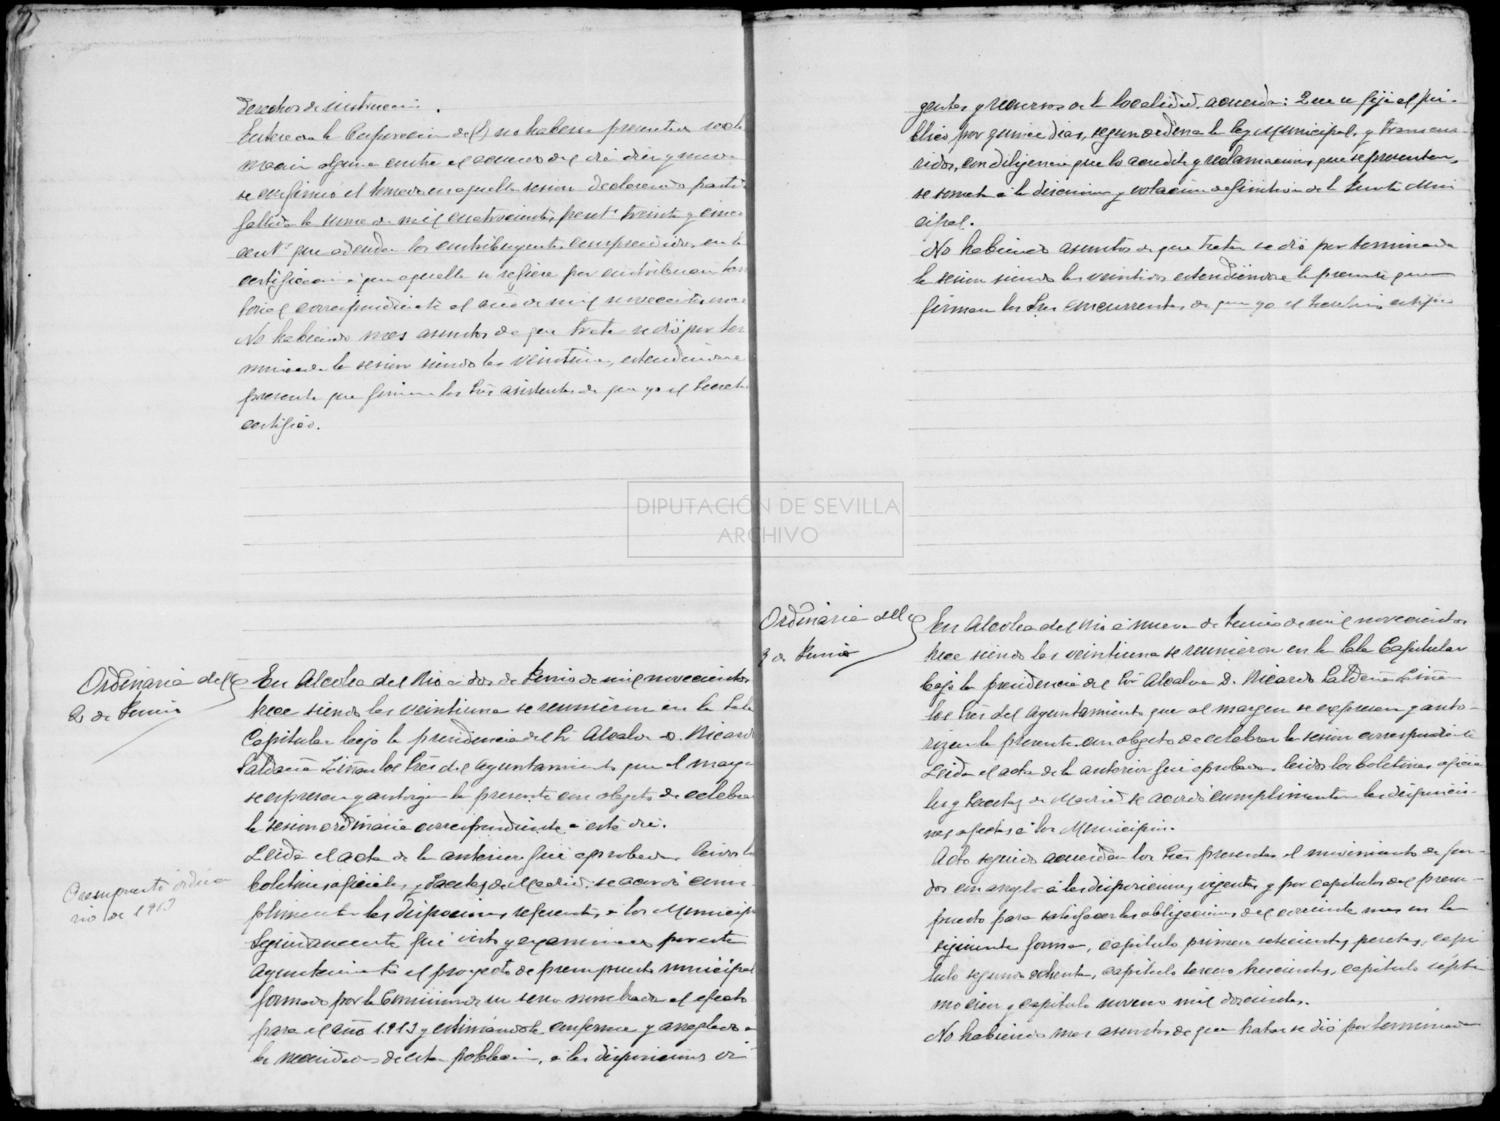 derechos de instruccion.
Enterada la Corporacion de no haberse presentado recla
macion alguna contra el acuerdo del dia diez y nueve
se confirmó el tomado en aquella sesion declarando parti
fallida la suma de mil cuatrocientas peset.s treinta y cinco
cent.s que adeudan los contribuyentes comprendidos en la
certificacion á que aquella se refiere por contribucion terri
torial correspondiente al año de mil novecientos
No habiendo mas asuntos de que tratar se dió por ter
minada la sesion siendo las veintiuna, extendiendose
presente que firman los Sres asistentes de que yo el Secreta
certifico.
Ordinaria del
2 de Junio
En Alcolea del Rio a dos de Junio de mil novecientos
trece siendo las veintiuna se reunieron en la Sala
Capitular bajo la presidencia del Sr Alcalde D. Ricardo
Saldaña Liñan los Sres del Ayuntamiento que al marge
se expresan y autorizan la presente con objeto de celebrar
la sesion ordinaria correspondiente a este dia.
Leida el acta de la anterior fué aprobada. Leidos los
boletines oficiales y Gacetas de Madrid se acordó cum
plimentar las disposiciones referentes a los Municipi
Presupuesto ordina
rio de 1913
Seguidamente fué visto y examinado por este
Ayuntamiento el proyecto de presupuesto municipal
formado por la Comision de su seno nombrada al efecto
para el año 1913 y estimandole conforme y arreglado a
las necesidades de esta poblacion, a las disposiciones vi
gentes y recursos de la localidad acuerda: Que se fije al pú-
blico por quince dias, segun ordena la ley Municipal, y transcur-
ridos, con diligencia que lo acredite y reclamaciones que se presenten,
se someta á la discusion y votacion definitiva de la Junta Muni
cipal.
No habiendo asuntos de que tratar se dió por terminada
la sesion siendo las veintidos extendiéndose la presente que
firman los Sres concurrentes de que yo el Secretario certifico
Ordinaria del
9 de Junio
En Alcolea del Rio á nueve de Junio de mil novecientos
trece siendo las veintiuna se reunieron en la Sala Capitular
bajo la presidencia del Sr Alcalde D. Ricardo Saldaña Liñan
los Sres del Ayuntamiento que al margen se expresan y auto-
rizan la presente con objeto de celebrar la sesion correspondiente
Leida el acta de la anterior fué aprobada. Leidos los boletines oficia
les y Gacetas de Madrid se acordó cumplimentar las disposicio-
nes afectas á los Municipios.
Acto seguido acuerdan los Sres presentes el movimiento de fon-
dos con arreglo á las disposiciones vigentes y por capitulos del presu-
puesto para satisfacer las obligaciones del corriente mes en la
siguiente forma, capitulo primero setecientas pesetas, capi
tulo segundo ochenta, capitulo tercero trescientas, capitulo sépti
mo cien y capitulo noveno mil doscientas.
No habiendo mas asuntos de que tratar se dió por terminada
DIPUTACIÓN DE SEVILLA
ARCHIVO